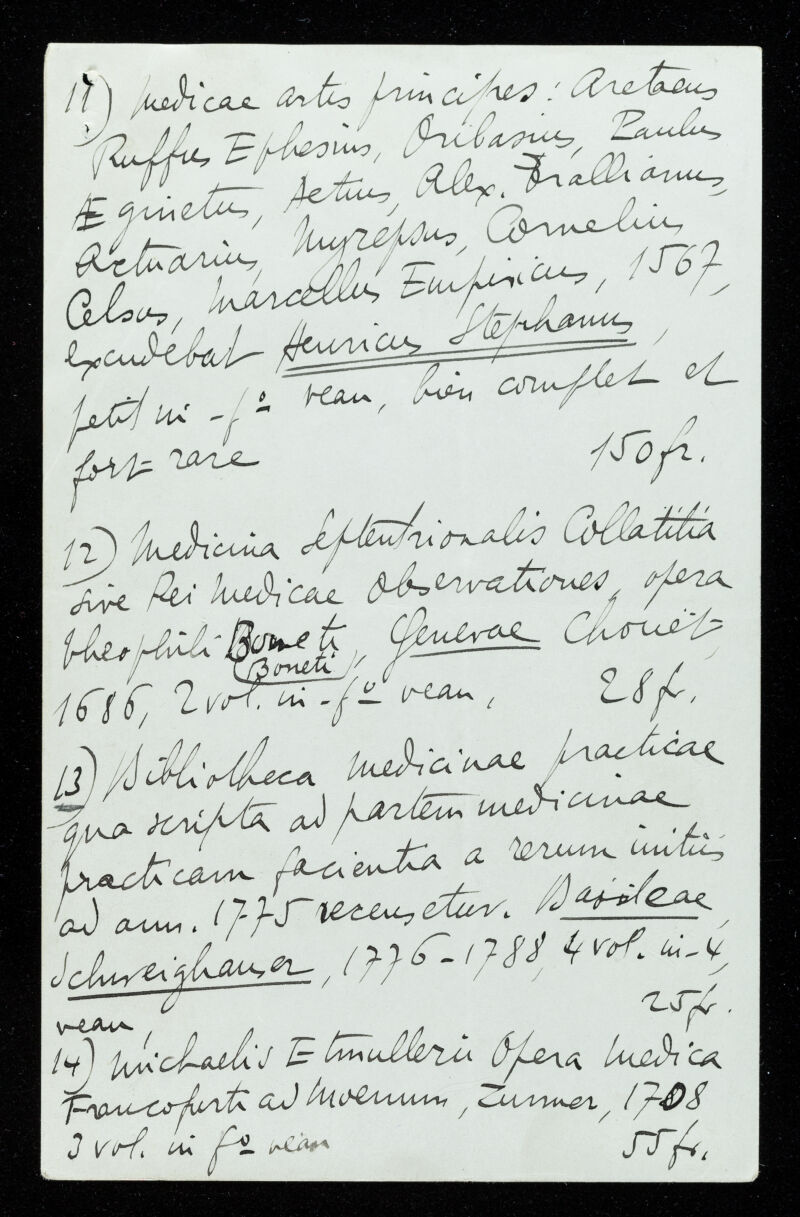 11) Medicae artis principes: Aretaeus
Ruffus Ephesius, Oribasius, Paulus
Æginetus, Aetius, Alex. Trallianus,
Actuarius, Myrepsus, Cornelius
Celsus, Marcellus Empiricus, 1567,
excudebat Henricus Stephanus,
petit in-fº veau, bien complet et
fort rare 150 fr.
12) Medicina Septentrionalis Collatitia
sive Rei Medicae Observationes, opera
theophili Boneti, Genevae Chouët,
(Boneti)
1686, 2 vol. in-fº veau, 28 fr.
13) Bibliotheca medicinae practicae
qua scripta ad partem medicinae
practicam facientia a rerum initiis
ad ann. 1775 recensetur. Basileae,
Schweighauser, 1776-1788, 4 vol. in-4,
veau, 25 fr.
14) Michaelis Etmullerii Opera Medica
Francofurti ad Moenum, Zunner, 1708
3 vol. in fº veau 55 fr.